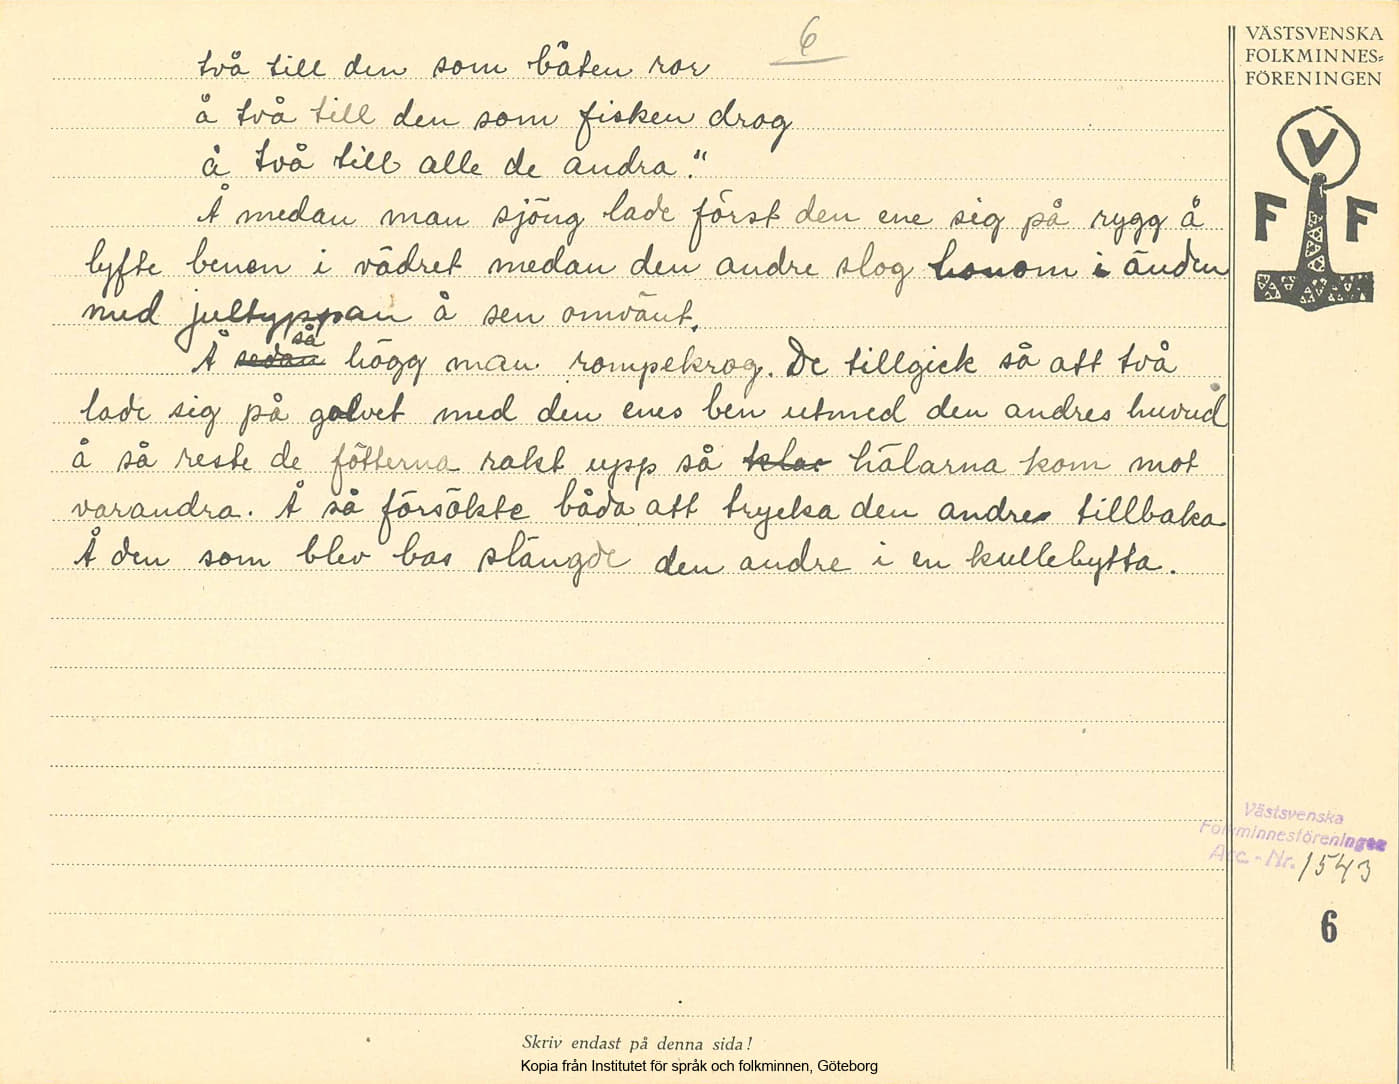 6
två till den som båten ror
å två till den som fisken drog
å två till alle de andra."
Å medan man sjöng lade först den ene sig på rygg å
lyfte benen i vädret medan den andre slog honom i änden
med jultyppan å sen omvänt.
Å sedan så högg man rompekrog. De tillgick så att två
lade sig på golvet med den enes ben utmed den andres huvud
å så reste de fötterna rakt upp så klac hälarna kom mot
varandra. Å så försökte båda att trycka den andres tillbaka
Å den som blev bas slängde den andre i en kullebytta.
VÄSTSVENSKA
FOLKMINNES=
FÖRENINGEN
V
F F
Västsvenska
Folkminnesföreningen
Acc.-Nr. 1543
6
Skriv endast på denna sida!
Kopia från Institutet för språk och folkminnen, Göteborg